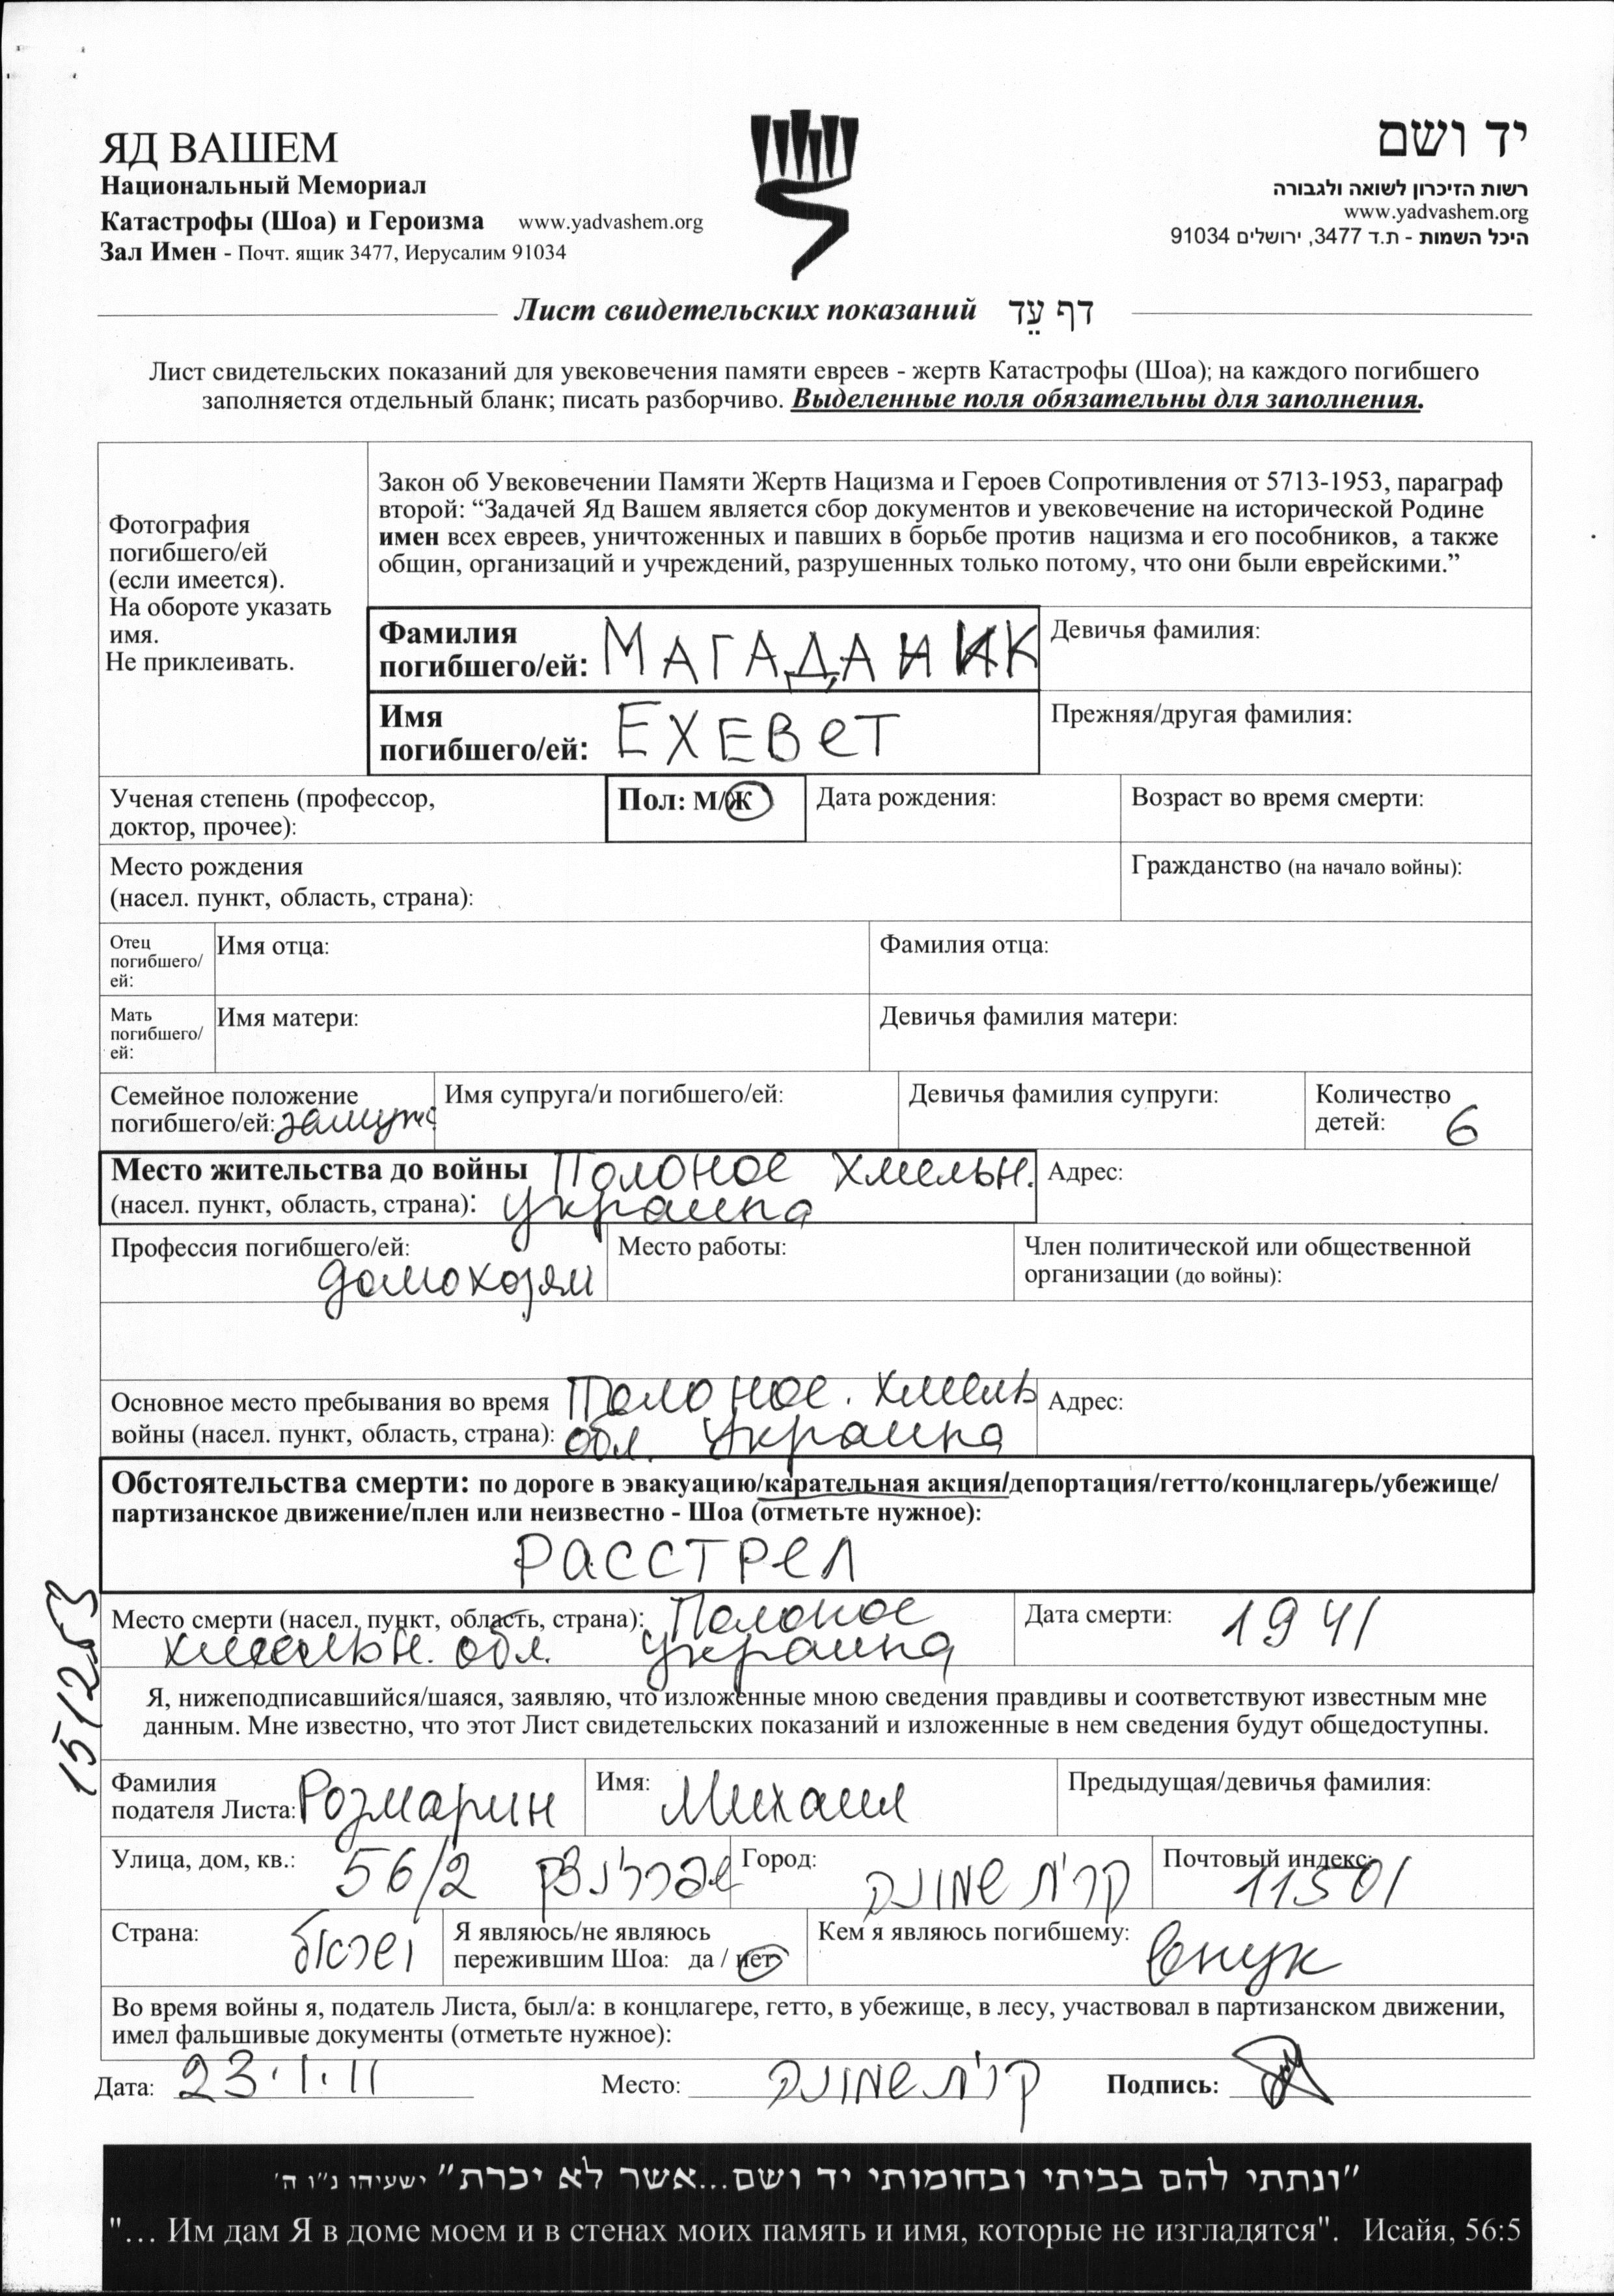 ЯД ВАШЕМ
Национальный Мемориал
Катастрофы (Шоа) и Героизма www.yadvashem.org
Зал Имен - Почт. ящик 3477, Иерусалим 91034
יד ושם
רשות הזיכרון לשואה ולגבורה
www.yadvashem.org
היכל השמות - ת.ד 3477, ירושלים 91034
Лист свидетельских показаний דף עֵד
Лист свидетельских показаний для увековечения памяти евреев - жертв Катастрофы (Шоа); на каждого погибшего
заполняется отдельный бланк; писать разборчиво. Выделенные поля обязательны для заполнения.
Фотография
погибшего/ей
(если имеется).
На обороте указать
имя.
Не приклеивать.
Закон об Увековечении Памяти Жертв Нацизма и Героев Сопротивления от 5713-1953, параграф
второй: “Задачей Яд Вашем является сбор документов и увековечение на исторической Родине
имен всех евреев, уничтоженных и павших в борьбе против нацизма и его пособников, а также
общин, организаций и учреждений, разрушенных только потому, что они были еврейскими.”
Фамилия
погибшего/ей: МАГАДАНИК
Девичья фамилия:
Имя
погибшего/ей: ЕХЕВЕТ
Прежняя/другая фамилия:
Ученая степень (профессор,
доктор, прочее):
Пол: М/Ж
Дата рождения:
Возраст во время смерти:
Место рождения
(насел. пункт, область, страна):
Гражданство (на начало войны):
Отец
погибшего/
ей:
Имя отца:
Фамилия отца:
Мать
погибшего/
ей:
Имя матери:
Девичья фамилия матери:
Семейное положение
погибшего/ей: замуж
Имя супруга/и погибшего/ей:
Девичья фамилия супруги:
Количество
детей: 6
Место жительства до войны Полоное Хмельн.
(насел. пункт, область, страна): Украина
Адрес:
Профессия погибшего/ей:
домохозяй
Место работы:
Член политической или общественной
организации (до войны):
Основное место пребывания во время Полоное. Хмельн
войны (насел. пункт, область, страна): обл. Украина
Адрес:
Обстоятельства смерти: по дороге в эвакуацию/карательная акция/депортация/гетто/концлагерь/убежище/
партизанское движение/плен или неизвестно - Шоа (отметьте нужное):
РАССТРЕЛ
Место смерти (насел. пункт, область, страна): Полоное
Хмельн. обл. Украина
Дата смерти: 1941
151253
Я, нижеподписавшийся/шаяся, заявляю, что изложенные мною сведения правдивы и соответствуют известным мне
данным. Мне известно, что этот Лист свидетельских показаний и изложенные в нем сведения будут общедоступны.
Фамилия
подателя Листа: Розмарин
Имя: Михаил
Предыдущая/девичья фамилия:
Улица, дом, кв.: 56/2
Город: קרית שמונה
Почтовый индекс: 11501
Страна: ישראל
Я являюсь/не являюсь
пережившим Шоа: да / нет
Кем я являюсь погибшему: внук
Во время войны я, податель Листа, был/а: в концлагере, гетто, в убежище, в лесу, участвовал в партизанском движении,
имел фальшивые документы (отметьте нужное):
Дата: 23.1.11 Место: קרית שמונה Подпись:
"ונתתי להם בביתי ובחומותי יד ושם...אשר לא יכרת" ישעיהו נ"ו ה'
"... Им дам Я в доме моем и в стенах моих память и имя, которые не изгладятся". Исайя, 56:5